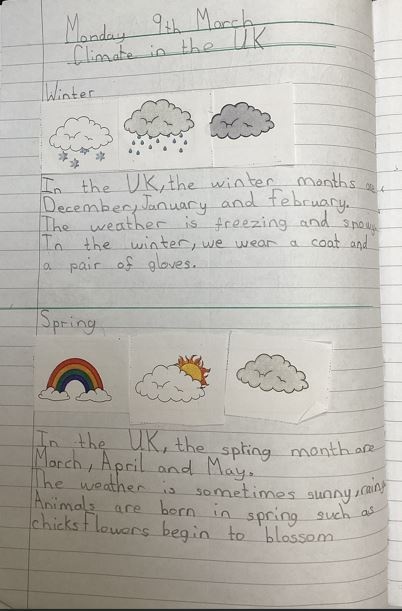 Monday 9th March
Climate in the UK
Winter
In the UK, the winter months are
December, January and february.
The weather is freezing and snowy
In the winter, we wear a coat and
a pair of gloves.
Spring
In the UK, the spring month are
March, April and May.
The weather is sometimes sunny, rainy
Animals are born in spring such as
chicks flowers begin to blossom